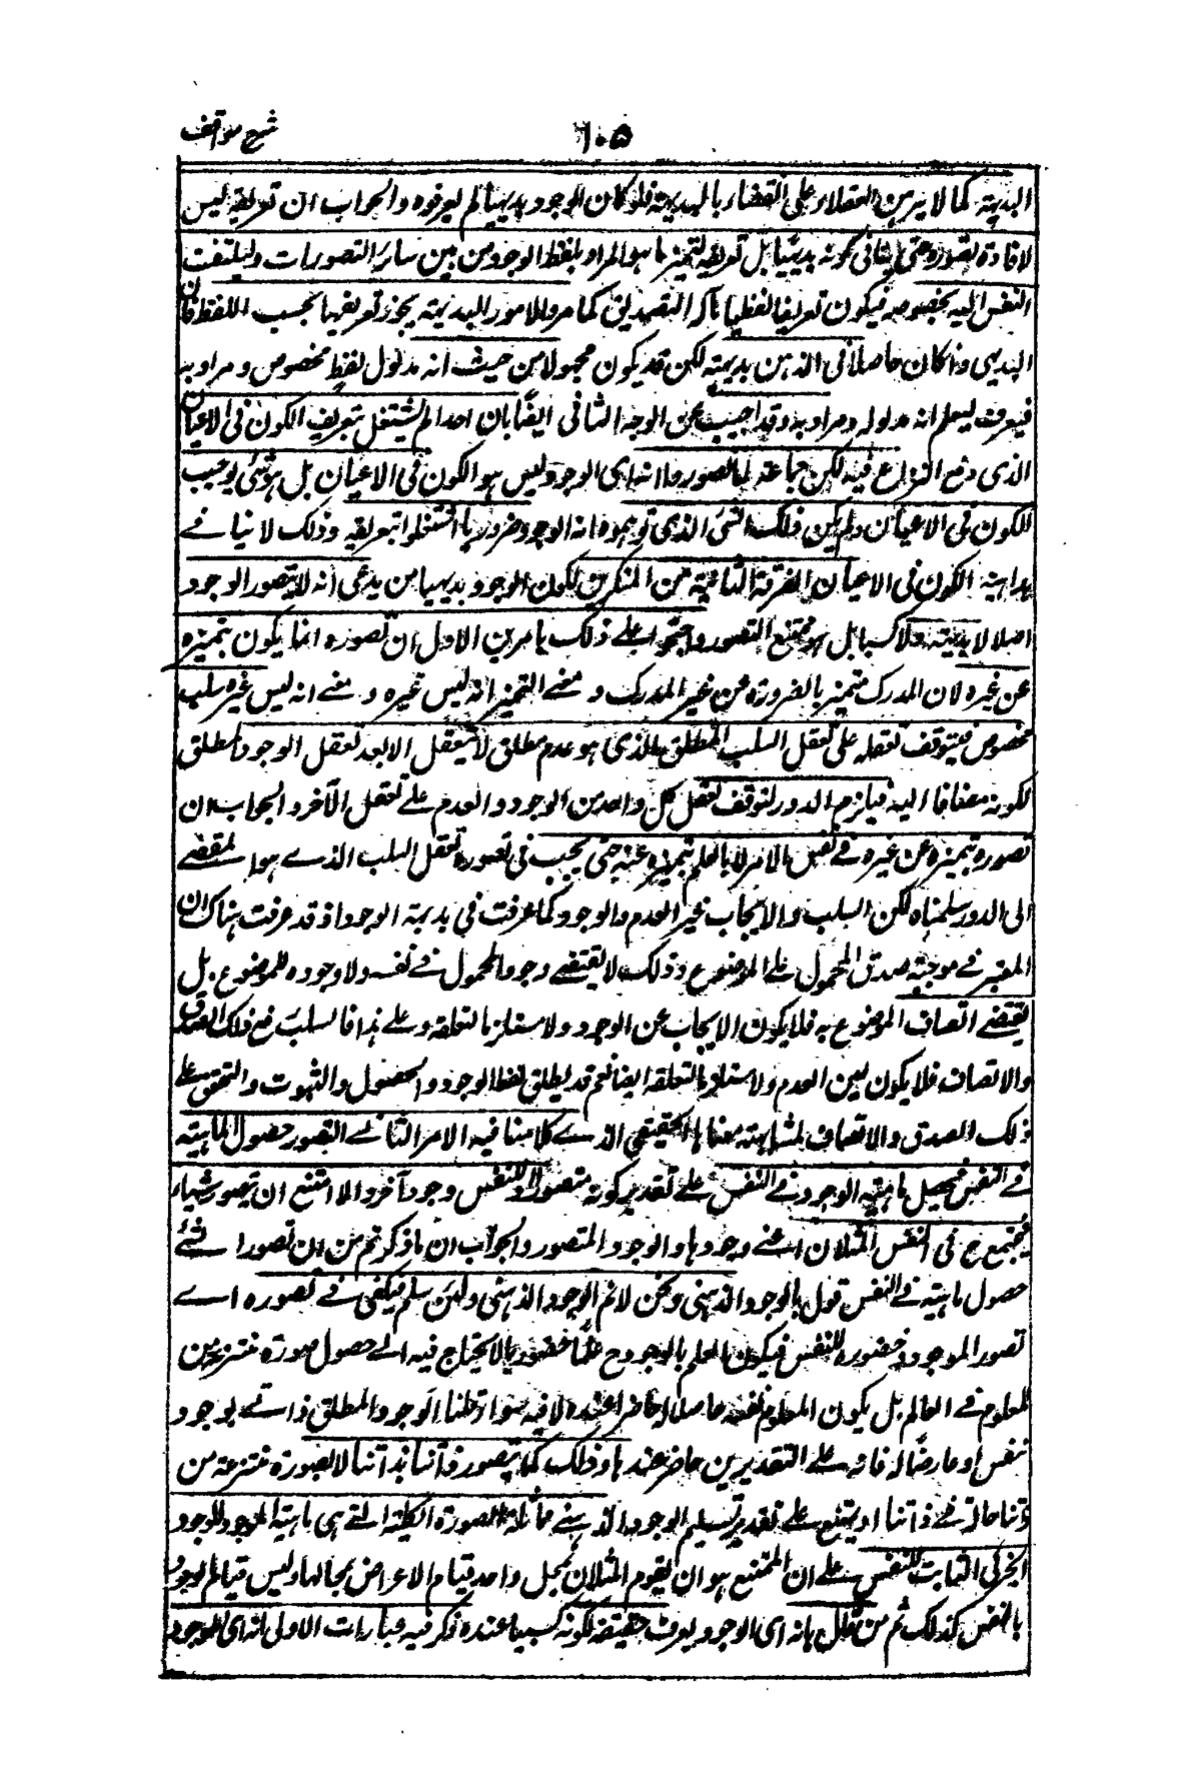 شرح مواقف
١٠٥
البديهة كما لا يبرهن العقلاء على القضايا البديهية فلو كان الوجود بديهيا لم يعرفوه والجواب ان تعريفه ليس
لافادة تصوره حتى ينافى كونه بديهيا بل تعريفه لتمييز ما هو المراد بلفظ الوجود من بين سائر التصورات وليلتفت
النفس اليه بخصوصه فيكون تعريفا لفظيا مآله التصديق كما مر والامور البديهية يجوز تعريفها بحسب اللفظ فان
البديهى وان كان حاصلا فى الذهن بديهة لكن قد يكون مجهولا من حيث انه مدلول لفظ مخصوص و مراد به
فيعرف ليعلم انه مدلوله ومراد به وقد اجيب عن الوجه الثانى ايضا بان احدا لم يشتغل بتعريف الكون فى الاعيان
الذى وقع النزاع فيه لكن جماعة لما تصوروا انه اى الوجود ليس هو الكون فى الاعيان بل هو شئ يوجب
الكون فى الاعيان ولم يكن ذلك الشئ الذى توهموه انه الوجود ضروريا اشتغلوا بتعريفه وذلك لا ينافے
بداهة الكون فى الاعيان الفرقة الثانية من المنكرين لكون الوجود بديهيا من يدعى انه لا يتصور الوجود
اصلا لا بديهة ولا كسبا بل هو ممتنع التصور واحتجوا علے ذلك بامرين الاول ان تصوره انما يكون بتميزه
عن غيره لان المدرك متميز بالضرورة عن غير المدرك و معنے التميز انه ليس غيره و معنے انه ليس غيره سلب
مخصوص فيتوقف تعقله على تعقل السلب المطلق الذى هو عدم مطلق لا يتعقل الا بعد تعقل الوجود المطلق
لكونه مضافا اليه فيلزم الدور لتوقف تعقل كل واحد من الوجود والعدم علے تعقل الآخر والجواب ان
تصوره بتميزه عن غيره فے نفس الامر لا بالعلم بتميزه عنه حتى يجب فى تصوره تعقل السلب الذے هو المفضے
الى الدور سلمناه لكن السلب والايجاب غير العدم والوجود كما عرفت فى بديهة الوجود اذ قد عرفت هناك ان
المعتبر فے موجبته صدق المحمول علے الموضوع وذلك لا يقتضے وجود المحمول فے نفسه ولا وجوده للموضوع بل
يقتضے اتصاف الموضوع به فلا يكون الايجاب عن الوجود ولا مستلزما لتعقله وعلے هذا فالسلب رفع ذلك الصدق
والاتصاف فلا يكون عين العدم ولا مستلزما لتعقله ايضا نعم قد يطلق لفظ الوجود والحصول والثبوت والتحقق علے
ذلك الصدق والاتصاف لمشابهته معناها الحقيقى الذے كلامنا فيه الامر الثانے التصور حصول الماهية
فے النفس فيحصل ماهية الوجود فے النفس علے تقدير كونه متصورا وللنفس وجود آخر والا امتنع ان يتصور شيأ
فيجتمع ح فى النفس المثلان اعنے وجودها والوجود المتصور والجواب ان ما ذكرتم من ان تصور الشئے
حصول ماهيته فے النفس قول بالوجود الذهنى ونحن لا نم الوجود الذهنى ولئن سلم فيكفى فے تصوره اے
تصور الموجود حضوره للنفس فيكون العلم بالوجود ح علما حضوريا لا يحتاج فيه الے حصول صورة منتزعة من
المعلوم فے العالم بل يكون المعلوم نفسه حاصلا حاضرا عنده لا فيه سواء قلنا الوجود المطلق ذاتے لوجود
النفس او عارض له فانه علے التقديرين حاضر عندها وذلك كما يتصور ذاتنا بذاتنا لا بصورة منتزعة من
ذاتنا حالة فے ذاتنا او يمتنع علے تقدير تسليم الوجود الذهنے مماثلة الصورة الكلية التے هى ماهية الوجود للوجود
الجزئى الثابت للنفس علے ان الممتنع هو ان يقوم المثلان بمحل واحد قيام الاعراض بمحالها وليس قيام الوجود
بالنفس كذلك ثم من قال بانه اى الوجود يعرف حقيقة لكونه كسبيا عنده ذكر فيه عبارات الاولى انه اى الموجود